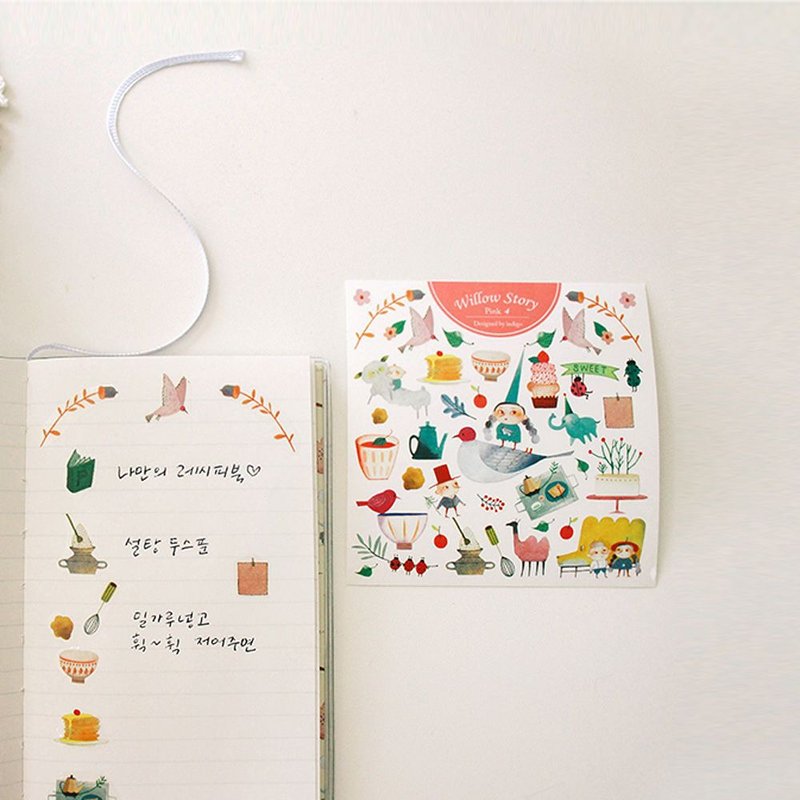 Willow Story
Pink 4
Designed by indigo
SWEET
나만의 레시피북♡
설탕 두스푼
밀가루넣고
휙~휙 저어주면